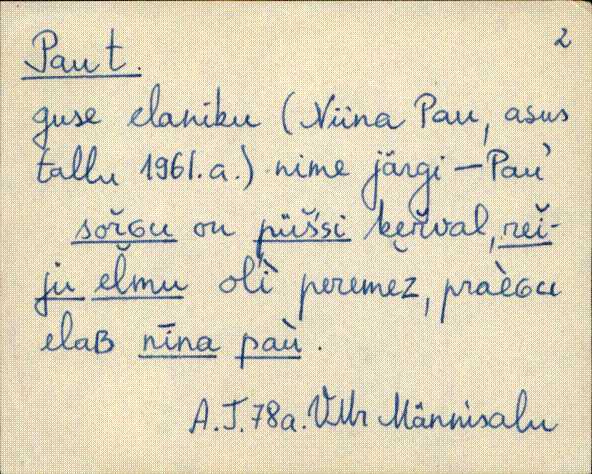 2
Pau t.
guse elaniku (Niina Pau, asus
tallu 1961.a.) nime järgi – Pau'
sořGu on püš́si keřval, reǐ-
ju eľmu olì peremež, praèGu
elaB nīna paù.
A.J. 78a. VMr Männisalu